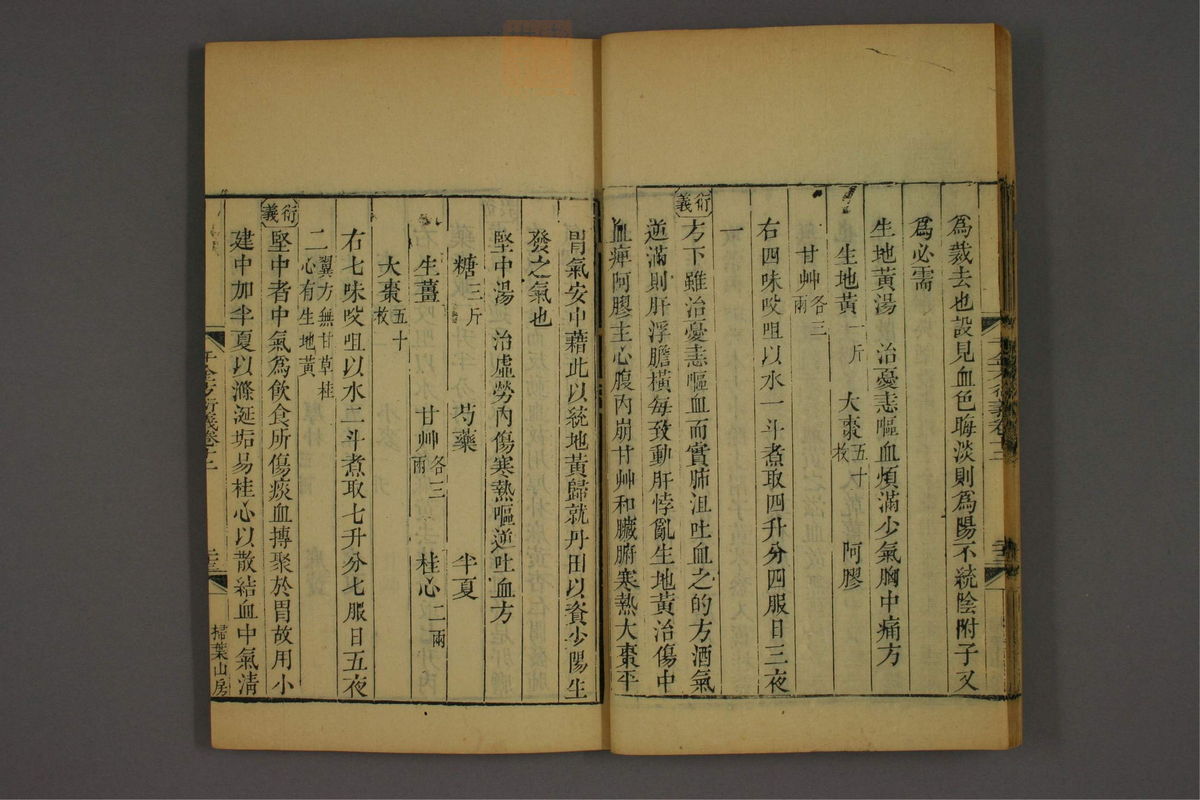 爲裁去也設見血色晦淡則爲陽不統陰附子又
爲必需
生地黃湯　治憂恚嘔血煩滿少氣胸中痛方
生地黃一斤　大棗五十枚　阿膠
甘艸各三兩
右四味㕮咀以水一斗煮取四升分四服日三夜
一
衍義　方下雖治憂恚嘔血而實肺沮吐血之的方酒氣
逆滿則肝浮膽橫每致動肝悖亂生地黃治傷中
血痺阿膠主心腹內崩甘艸和臟腑寒熱大棗平
胃氣安中藉此以統地黃歸就丹田以資少陽生
發之氣也
堅中湯　治虛勞內傷寒熱嘔逆吐血方
糖三斤　芍藥　半夏
生薑　甘艸各三兩　桂心二兩
大棗五十枚
右七味㕮咀以水二斗煮取七升分七服日五夜
二翼方無甘草桂心有生地黃
衍義　堅中者中氣爲飲食所傷痰血搏聚於胃故用小
建中加半夏以滌涎垢易桂心以散結血中氣清
千金方衍義卷十二
掃葉山房